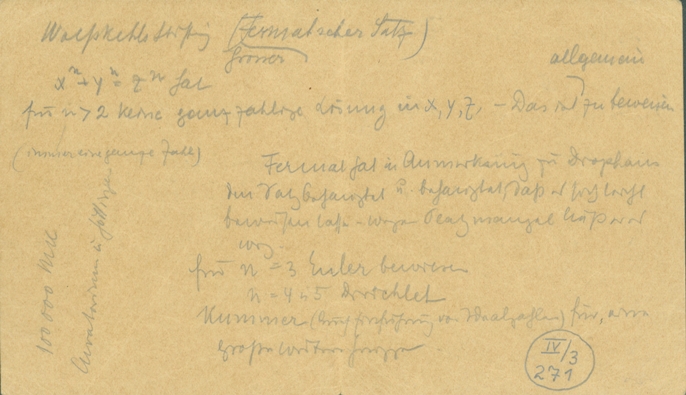 Wolfskehlstiftung (Fermatscher Satz)
Grosser
allgemein
xⁿ + yⁿ = zⁿ hat
für n > 2 keine ganzzahlige Lösung in x, y, z, – Das ist zu beweisen
(n immer eine ganze Zahl)
Fermat hat in Anmerkung zu Diophant
den Satz behauptet u. behauptet, daß er sich leicht
beweisen lasse – wegen Platzmangel ließ er er
weg.
für n = 3 Euler bewiesen
n = 4 5 Dirichlet
Kummer (durch Einführung von Idealzahlen) für eine
große weitere Gruppe
100 000 MK
Kuratorium in Göttingen
IV/3
271